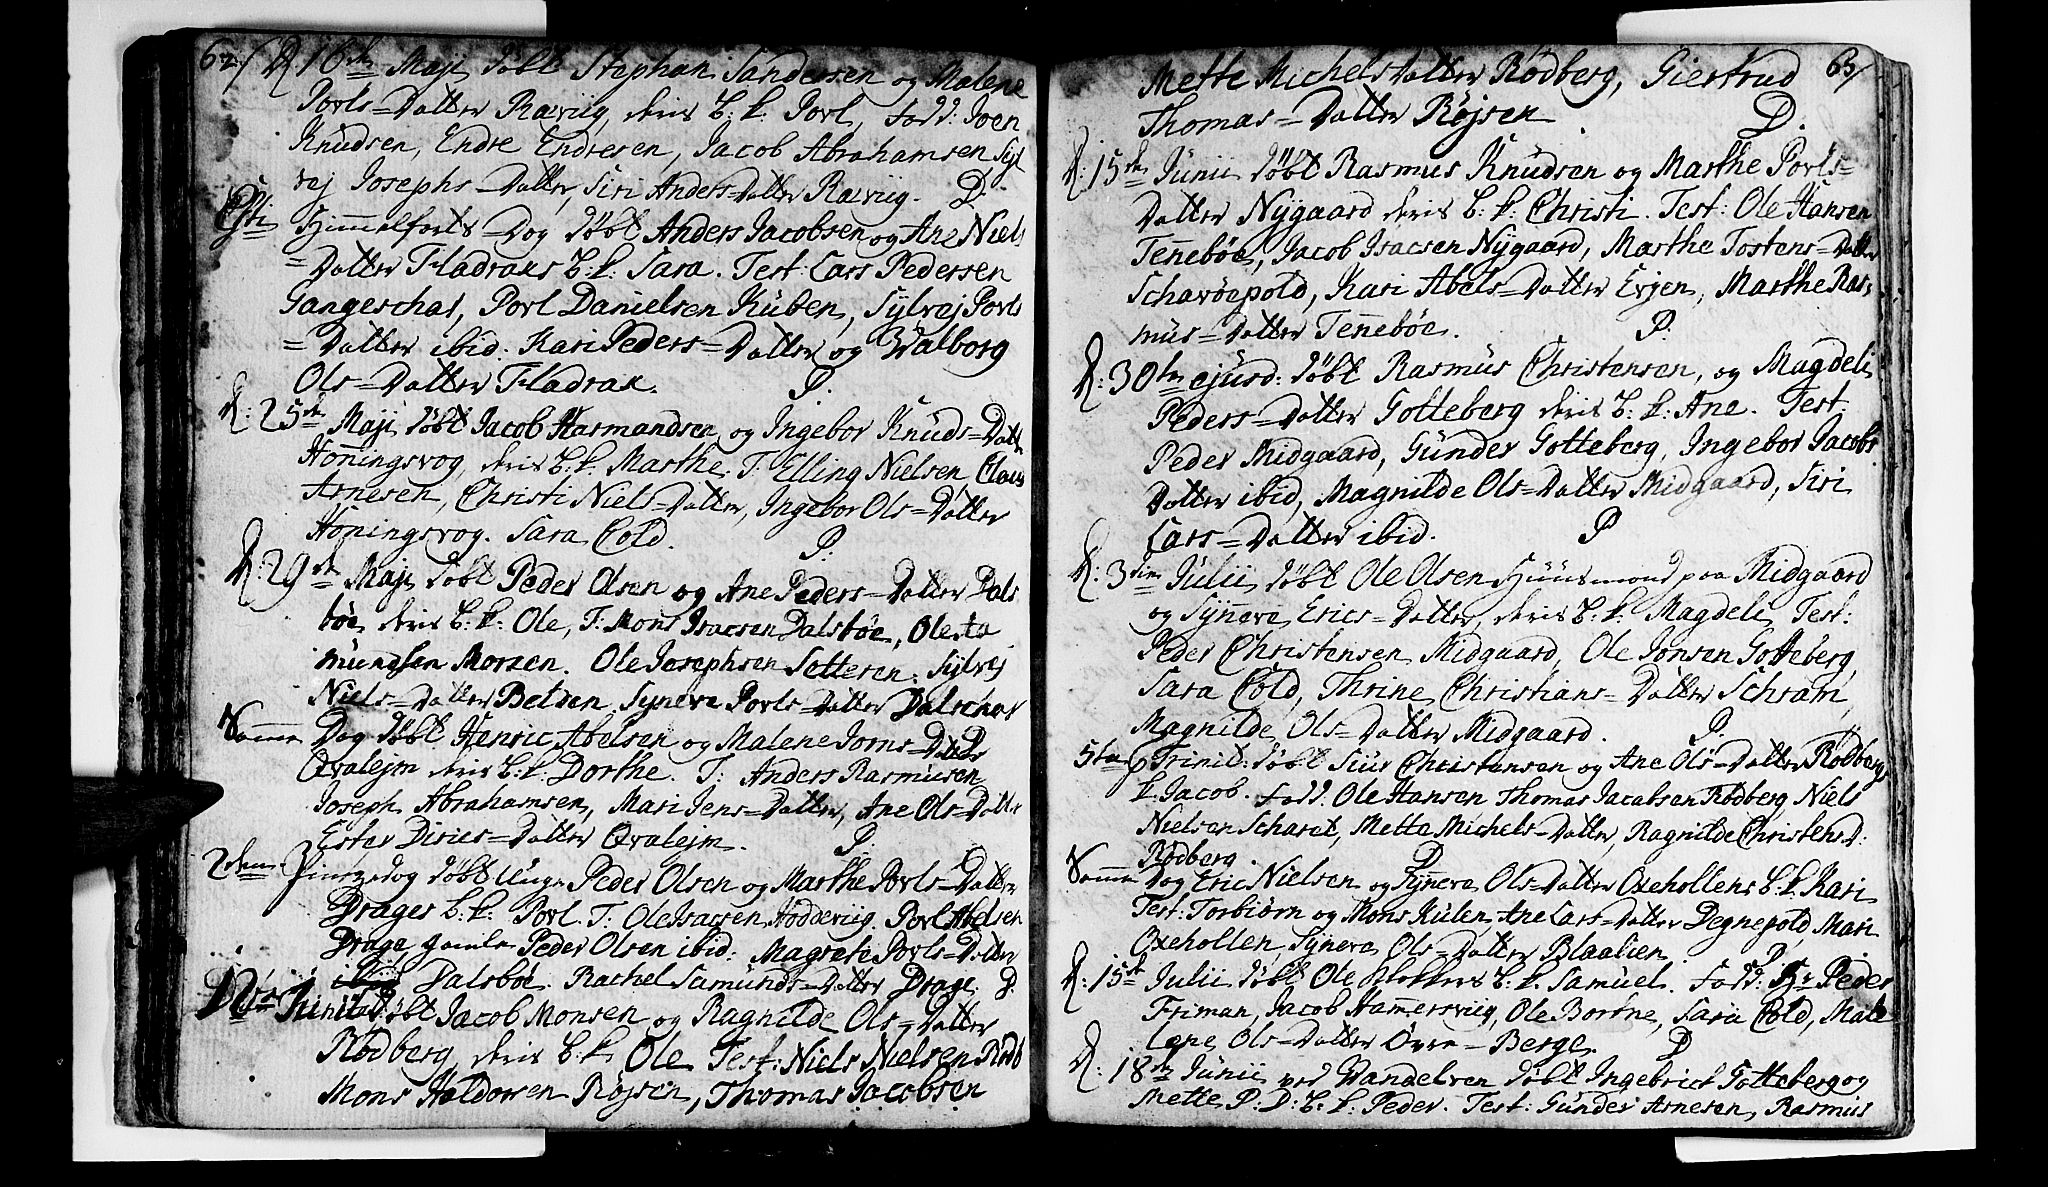 62/ D. 16de Maji døbt Stephan Sandersen og Malene
Povls=Datter Ræviig, deris B: k. Povl, Fadd: Joen
Knudsen, Endre Endresen, Jacob Abrahamsen Syl
vej Josephs=Datter, Siri Anders=Datter Rævig. D.
Chri Himmelfarts=Dag døbt Anders Jacobsen og Ane Niels
=Datter Fladraks B: k. Sara. Test: Lars Pedersen
Gangeschar, Povl Danielsen Kuben, Sylvej Povls
=Datter ibid. Kari Peders=Datter og Walborg
Ols=Datter Fladrak. D.
D: 25de Maji døbt Jacob Harmandsen og Ingebor Knuds=Datt
Honningsvog, deris B: k. Marthe. T. Elling Nielsen, Claus
Arnesen, Christi Niels=Datter, Ingebor Ols=Datter
Honingsvog. Sara Cold. D.
D: 29de Maji døbt Peder Olsen og Ane Peders=Datter Dals
bøe deris B: k: Ole, T: Mons Isacsen Dalsbøe, Ole
mundsen Morsen. Ole Josephsen Setteren. Sylvej
Niels=Datter Belden, Syneva Povls=Datter Dalschar
Samme Dag døbt Henric Abelsen og Malene Jorns=Datter D
Qvalejm deris B: k. Dorthe. T: Anders Rasmusen
Joseph Abrahamsen, Mari Jens=Datter, Ane Ols=Datter
Ester Dirics=Datter Qvalejm. D.
2den Pintzedag døbt Unge Peder Olsen og Marthe Povls=Datter
Drages B: k: Povl. T. Ole Isacsen Hoddeviig. Povl Abelsen
Drage, gamle Peder Olsen ibid: Magrete Povls=Datter
Dalsbøe. Rachel Samunds=Datter Drage. D.
Trinitat: døbt Jacob Monsen og Ragnilde Ols=Datter
Rødberg, deris B: k. Ole Test: Niels Nielsen Rødb
Mons Haldorsen Røjsen, Thomas Jacobsen
Mette Michelsdatter Rødberg, Giertrud 63/
Thomas=Datter Røjsen D.
D: 15de Junii døbt Rasmus Knudsen og Marthe Povls=
Datter Nygaard deris B: k: Christi. Test: Ole Hansen
Tennebøe, Jacob Isacsen Nygaard, Marthe Tostens=Datter
Scharøepold, Kari Abels=Datter Erjen, Marthe Ras,
mus=Datter Tennebøe. D.
D: 30te ejusd: døbt Rasmus Christensen, og Magdeli
Peders=Datter Gotteberg deris B: k: Ane. Test
Peder Midgaard, Gunder Gotteberg, Ingebor Jacobs
Datter ibid, Magnilde Ols=Datter Midgaard, Siri
Lars=Datter ibid. D
D: 3die Julii døbt Ole Olsen Huusmand paa Midgaard
og Synneva Erics=Datter, deris B: k. Magdeli Test:
Peder Christensen Midgaard, Ole Jonsen Gotteberg,
Sara Cold, Thrine Christians=Datter Schram,
Magnilde Ols=Datter Midgaard. D.
5te p Trinit: døbt Siur Christensen og Ane Ols=Datter Rødbergs
k. Jacob. Fadd. Ole Hansen Thomas Jacobsen Rødberg, Niels
Nielsen Scharet, Mette Michels=Datter, Ragnilde Christens D:
Rødberg. D
Samme Dag Eric Nielsen og Synneva Ols=Datter Oxehollens B: k. Kari
Test: Torbiørn og Mons Kulen, Ane Lars=Datter Degnepold, Mari
Oxehollen, Syneva Ols=Datter Blaalien. D.
D: 15de Julii døbt Ole B. k. Samuel. Fadd: Hr Peder
Friman, Jacob Hammersviig, Ole Bortne, Sara Cold, Male
lene Ols=Datter Øvre=Berge. D
D: 18de Junii ved Vandelven døbt Ingebrict Gotteberg og
Mette P: D: B: k. Peder. Test: Gunder Arnesen, Rasmus